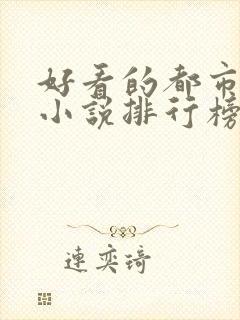 好看的都市
小说排行榜
連奕琦